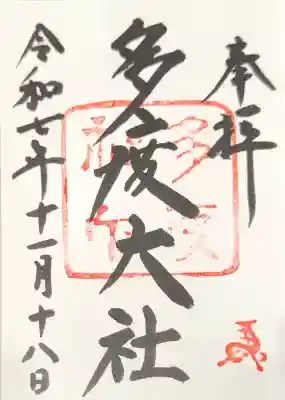 奉拝
多度大社
令和七年十一月十八日